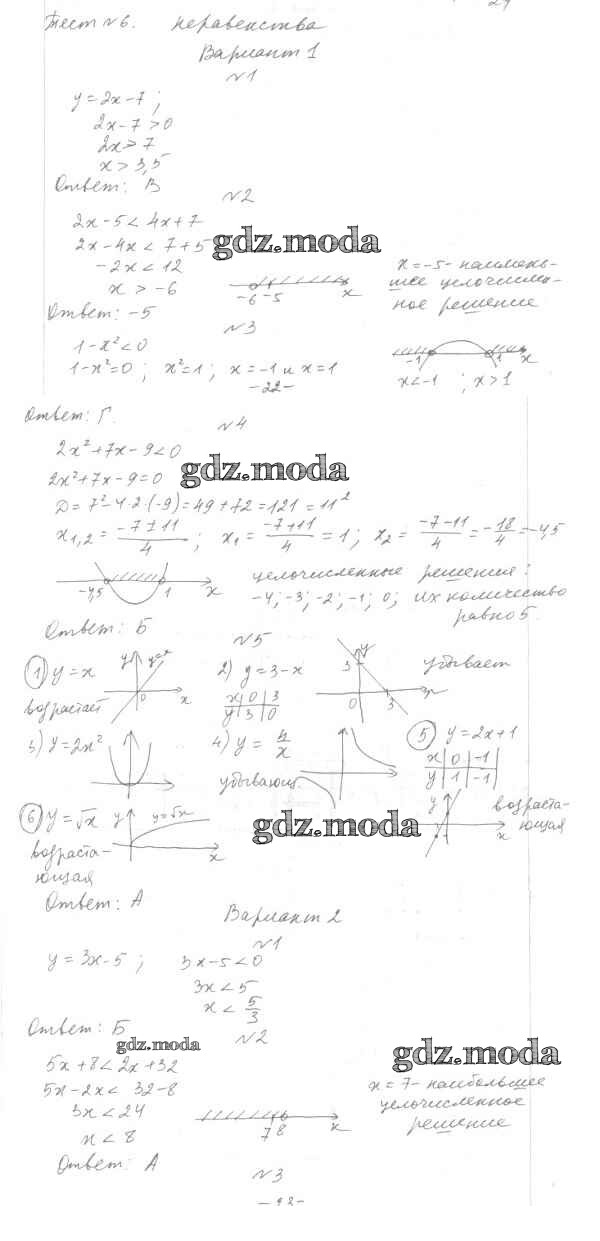 Тест №6. Неравенства
Вариант 1
№1
y = 2x - 7 ;
2x - 7 > 0
2x > 7
x > 3,5
Ответ: В
№2
2x - 5 < 4x + 7
2x - 4x < 7 + 5
-2x < 12
x > -6
-6 -5 x
x = -5 - наимень-
шее целочислен-
ное решение
Ответ: -5
№3
1 - x² < 0
1 - x² = 0 ; x² = 1 ; x = -1 и x = 1
-1 1 x
x < -1 ; x > 1
- 22 -
Ответ: Г.
№4
2x² + 7x - 9 < 0
2x² + 7x - 9 = 0
D = 7² - 4·2·(-9) = 49 + 72 = 121 = 11²
x₁,₂ = (-7 ± 11)/4 ; x₁ = (-7 + 11)/4 = 1 ; x₂ = (-7 - 11)/4 = -18/4 = -4,5
-4,5 1 x
целочисленные решения:
-4; -3; -2; -1; 0; их количество
равно 5.
Ответ: Б
№5
1) y = x
возрастает
y y=x 0 x
2) y = 3 - x
x 0 3
y 3 0
y 3 0 3 x
убывает
3) y = 2x²
4) y = 4/x
убывающ.
5) y = 2x + 1
x 0 -1
y 1 -1
y x
возраста-
ющая
6) y = √x
возраста-
ющая
y y=√x x
Ответ: А
Вариант 2
№1
y = 3x - 5 ; 3x - 5 < 0
3x < 5
x < 5/3
Ответ: Б
№2
5x + 8 < 2x + 32
5x - 2x < 32 - 8
3x < 24
x < 8
7 8 x
x = 7 - наибольшее
целочисленное
решение
Ответ: А
№3
gdz.moda
gdz.moda
gdz.moda
gdz.moda
gdz.moda